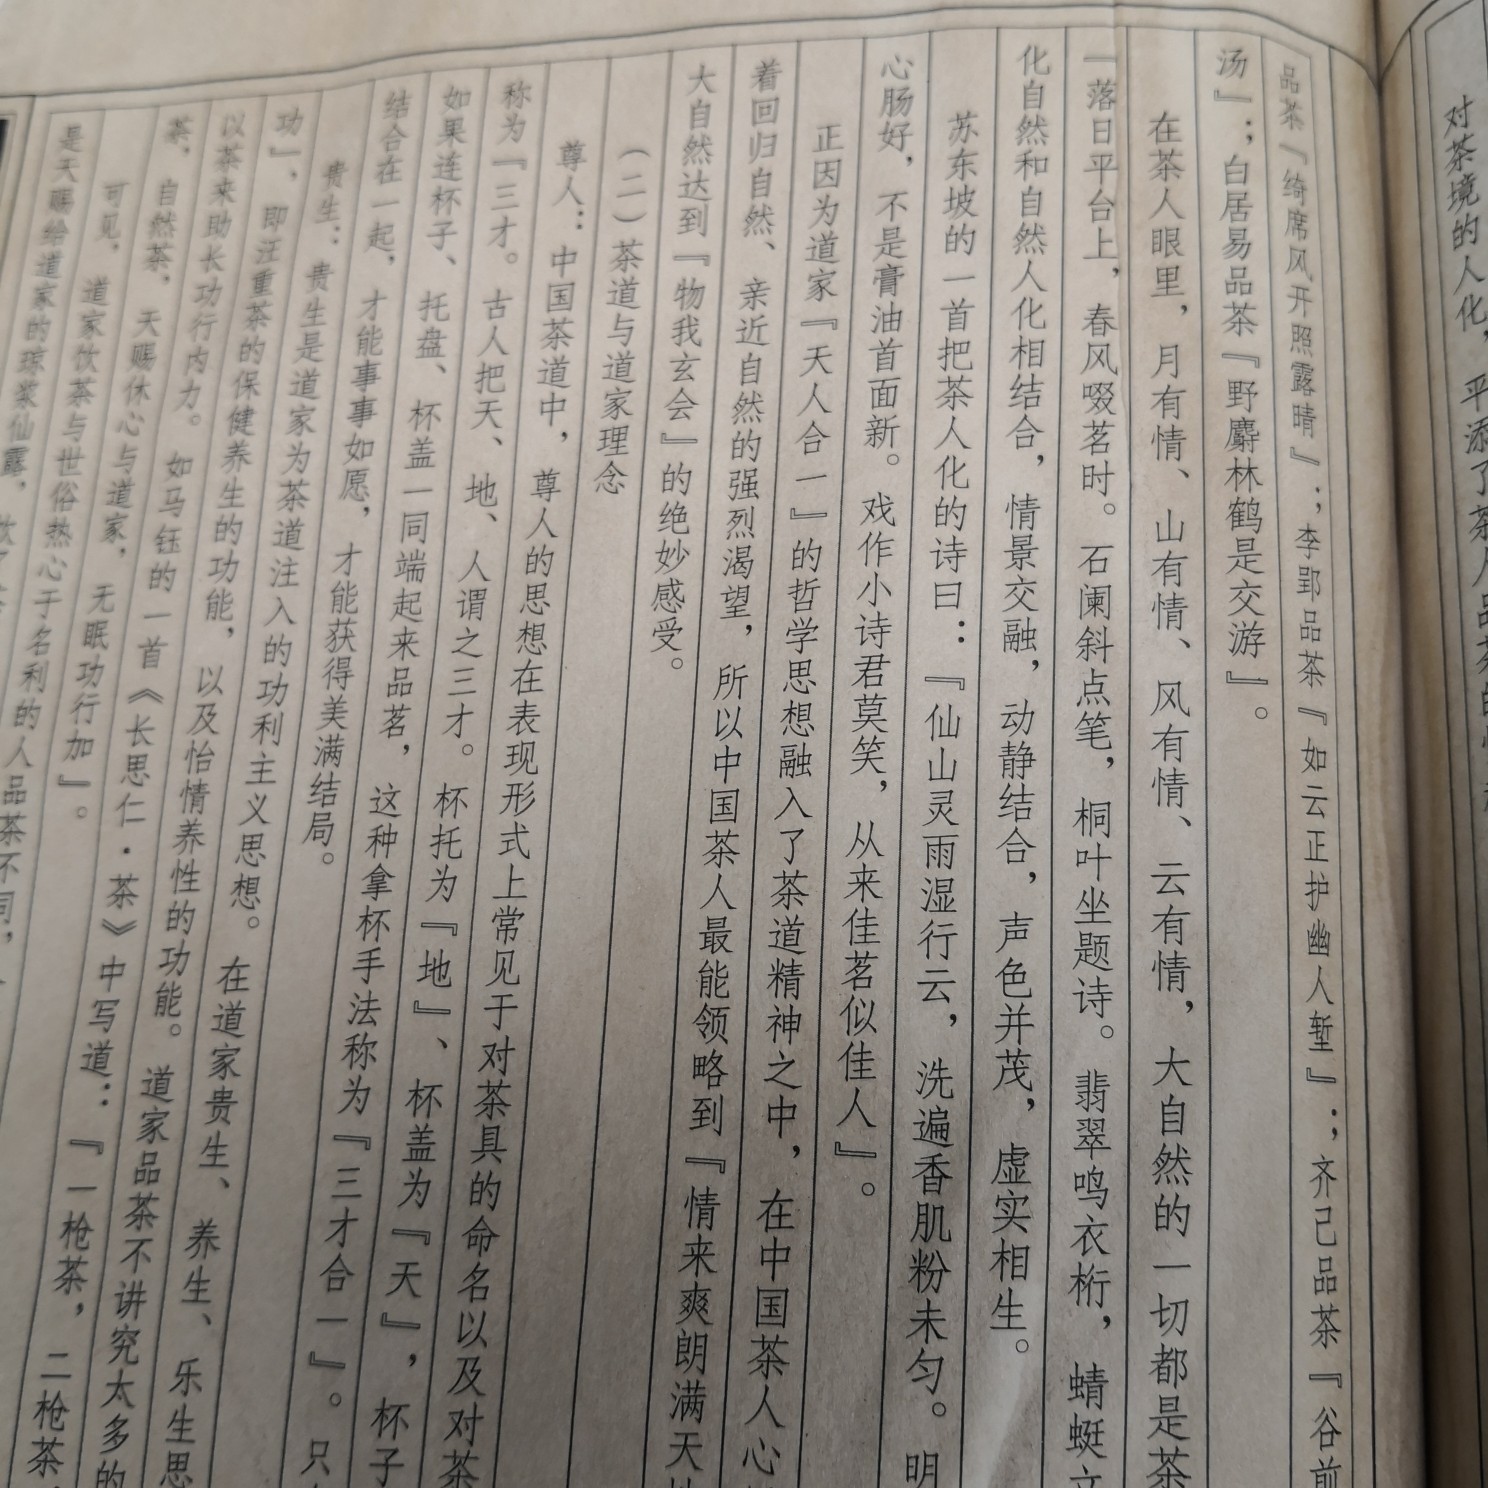 对茶境的人化，平添了茶人品茶的
品茶『绮席风开照露晴』；李郢品茶『如云正护幽人堑』；齐己品茶『谷前
汤』；白居易品茶『野麝林鹤是交游』。
在茶人眼里，月有情、山有情、风有情、云有情，大自然的一切都是茶
一落日平台上，春风啜茗时。石阑斜点笔，桐叶坐题诗。翡翠鸣衣桁，蜻蜓
化自然和自然人化相结合，情景交融，动静结合，声色并茂，虚实相生。
苏东坡的一首把茶人化的诗曰：『仙山灵雨湿行云，洗遍香肌粉未匀。明
心肠好，不是膏油首面新。戏作小诗君莫笑，从来佳茗似佳人』。
正因为道家『天人合一』的哲学思想融入了茶道精神之中，在中国茶人心
着回归自然、亲近自然的强烈渴望，所以中国茶人最能领略到『情来爽朗满天
大自然达到『物我玄会』的绝妙感受。
（二）茶道与道家理念
尊人：中国茶道中，尊人的思想在表现形式上常见于对茶具的命名以及对茶
称为『三才。古人把天、地、人谓之三才。杯托为『地』、杯盖为『天』，杯子
如果连杯子、托盘、杯盖一同端起来品茗，这种拿杯手法称为『三才合一』。只
结合在一起，才能事事如愿，才能获得美满结局。
贵生：贵生是道家为茶道注入的功利主义思想。在道家贵生、养生、乐生思
功』，即注重茶的保健养生的功能，以及怡情养性的功能。道家品茶不讲究太多的
以茶来助长功行内力。如马钰的一首《长思仁·茶》中写道：『一枪茶，二枪茶
茶，自然茶，天赐休心与道家，无眠功行加』。
可见，道家饮茶与世俗热心于名利的人品茶不同，
是天赐给道家的琼浆仙露，